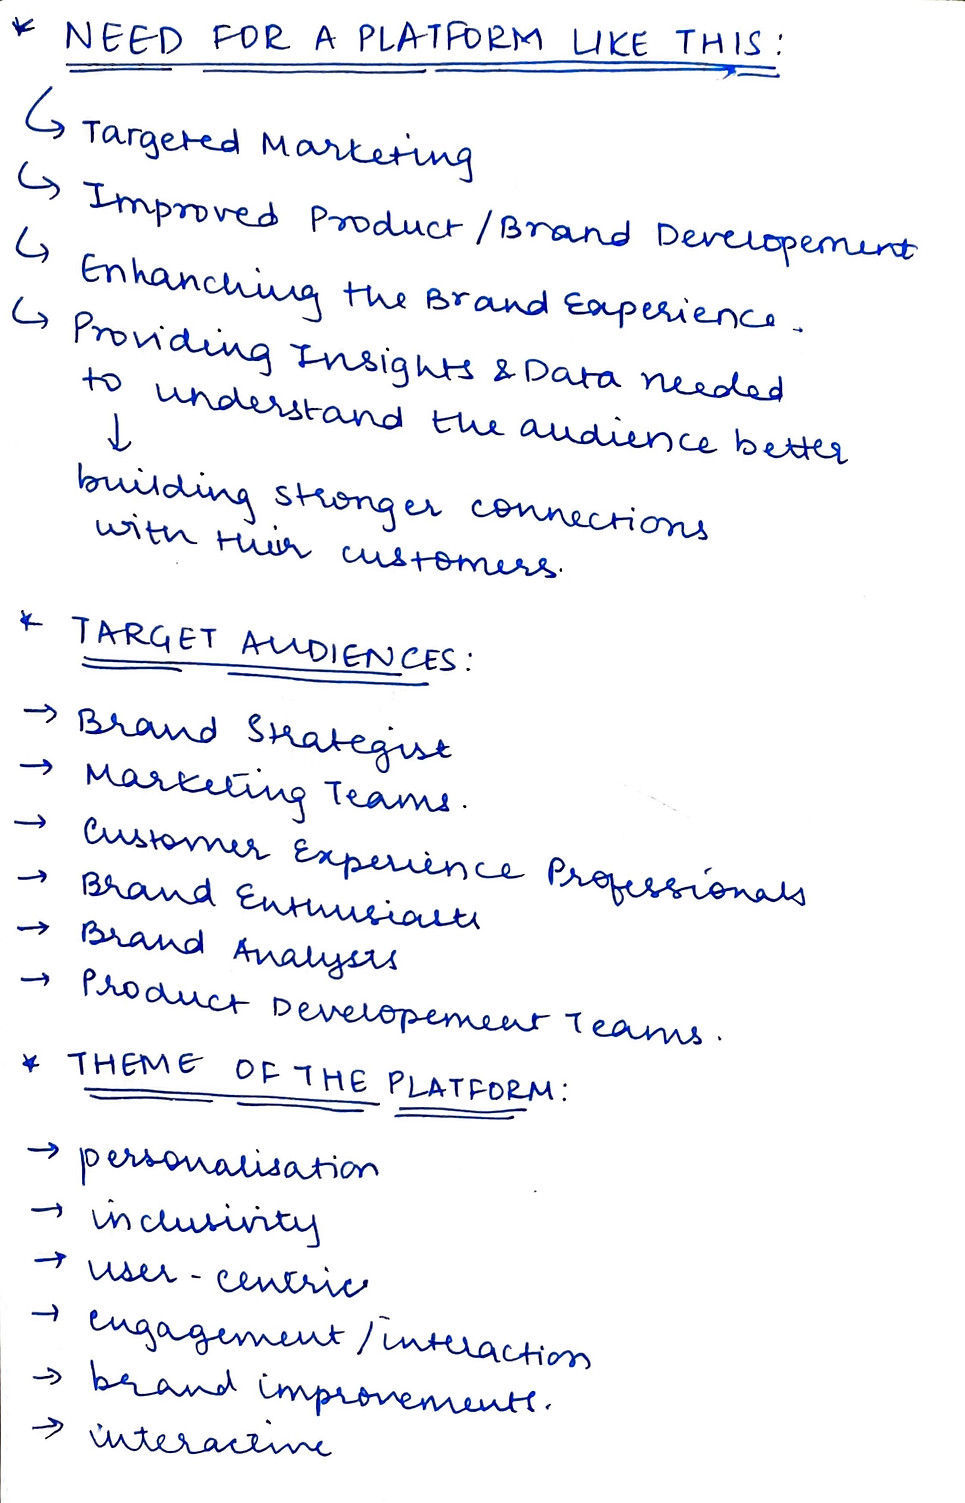 * NEED FOR A PLATFORM LIKE THIS:
↳ Targeted Marketing
↳ Improved Product / Brand Developement
↳ Enhanching the Brand Experience.
↳ Providing Insights & Data needed
to understand the audience better
↓
building stronger connections
with their customers.
* TARGET AUDIENCES:
→ Brand Strategist
→ Marketing Teams.
→ Customer Experience Professionals
→ Brand Enthusiasts
→ Brand Analysts
→ Product Developement Teams.
* THEME OF THE PLATFORM:
→ personalisation
→ inclusivity
→ user-centric
→ engagement / interaction
→ brand improvements.
→ interactive